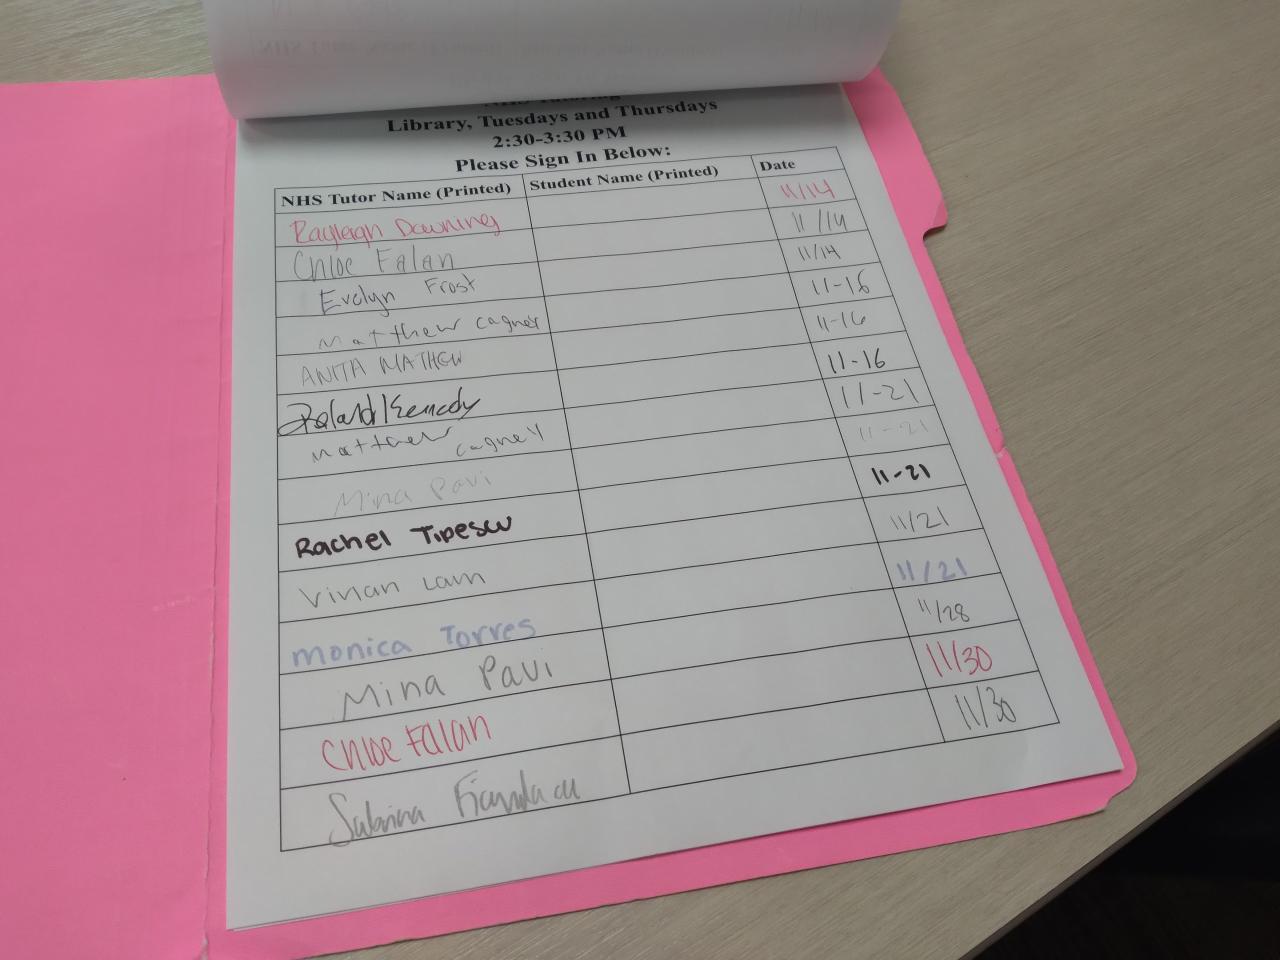 NHS Tutoring
Library, Tuesdays and Thursdays
2:30-3:30 PM
Please Sign In Below:
NHS Tutor Name (Printed) Student Name (Printed) Date
Rayleigh Downing 11/14
Chloe Falan 11/14
Evelyn Frost 11/14
matthew cagney 11-16
ANITA MATHEW 11-16
Roland Kennedy 11-16
matthew cagney 11-21
Mina Pavi 11-21
Rachel Tipescu 11-21
Vivian Lam 11/21
monica Torres 11/21
Mina Pavi 11/28
Chloe Falan 11/30
Sabrina 11/30